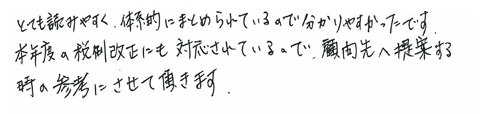 とても読みやすく、体系的にまとめられているので分かりやすかったです.
本年度の税制改正にも対応されているので、顧問先へ提案する
時の参考にさせて頂きます.